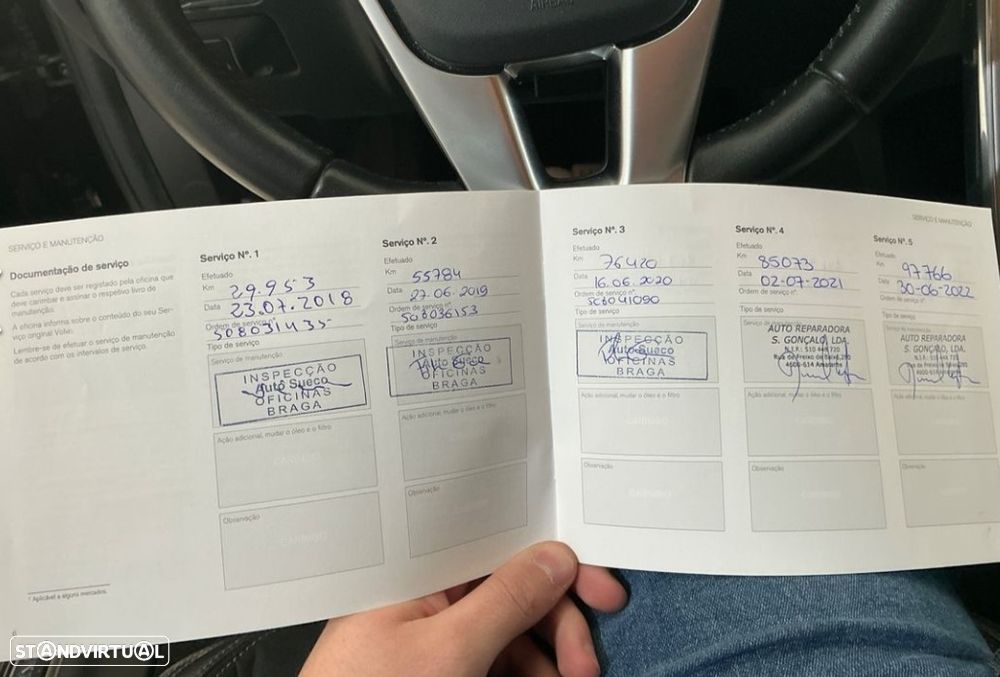 AIRBAG
SERVIÇO E MANUTENÇÃO
Documentação de serviço
Cada serviço deve ser registado pela oficina que
deve carimbar e assinar o respetivo livro de
manutenção.
A oficina informa sobre o conteúdo do seu Ser-
viço original Volvo.
Lembre-se de efetuar o serviço de manutenção
de acordo com os intervalos de serviço.
1 Aplicável a alguns mercados.
6
Serviço Nº. 1
Efetuado
Km 29.953
Data 23.07.2018
Ordem de serviço nº.
508031435
Tipo de serviço
Serviço de manutenção
INSPECÇÃO
Auto Sueco
OFICINAS
BRAGA
Ação adicional, mudar o óleo e o filtro
CARIMBO
Observação
CARIMBO
Serviço Nº. 2
Efetuado
Km 55784
Data 27.06.2019
Ordem de serviço nº.
508036153
Tipo de serviço
Serviço de manutenção
INSPECÇÃO
Auto Sueco
OFICINAS
BRAGA
Ação adicional, mudar o óleo e o filtro
Observação
SERVIÇO E MANUTENÇÃO
Serviço Nº. 3
Efetuado
Km 76420
Data 16.06.2020
Ordem de serviço nº.
508041090
Tipo de serviço
Serviço de manutenção
INSPECÇÃO
Auto Sueco
OFICINAS
BRAGA
Ação adicional, mudar o óleo e o filtro
CARIMBO
Observação
Serviço Nº. 4
Efetuado
Km 85073
Data 02-07-2021
Ordem de serviço nº.
Tipo de serviço
Serviço de manutenção
AUTO REPARADORA
S. GONÇALO, LDA.
N.I.F.: 510 444 720
4600-614 Amarante
Ação adicional, mudar o óleo e o filtro
Observação
Serviço Nº. 5
Efetuado
Km 97766
Data 30-06-2022
Ordem de serviço nº.
Tipo de serviço
Serviço de manutenção
AUTO REPARADORA
S. GONÇALO, LDA.
N.I.F.: 510 444 720
4600-614 Amarante
Ação adicional, mudar o óleo e o filtro
Observação
STANDVIRTUAL